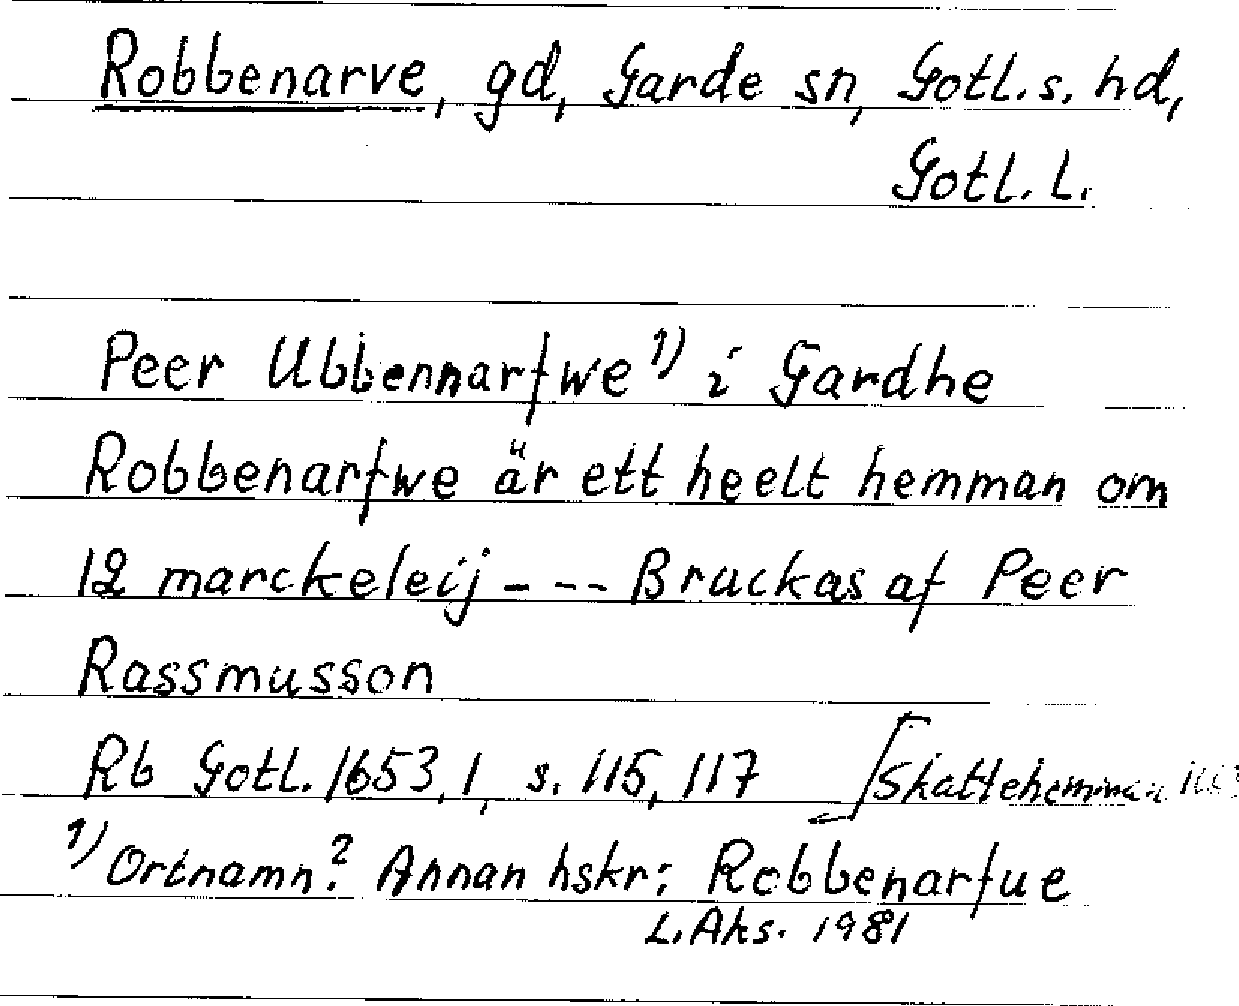 Robbenarve, gd, Garde sn, Gotl. s. hd,
Gotl. L.
Peer Ubbennarfwe 1) i Gardhe
Robbenarfwe är ett heelt hemman om
12 marckeleij - -- Bruckas af Peer
Rassmusson
Rb Gotl. 1653, 1, s. 115, 117 [Skattehemman
1) Ortnamn? Annan hskr: Robbenarfue
L. Ahs. 1981